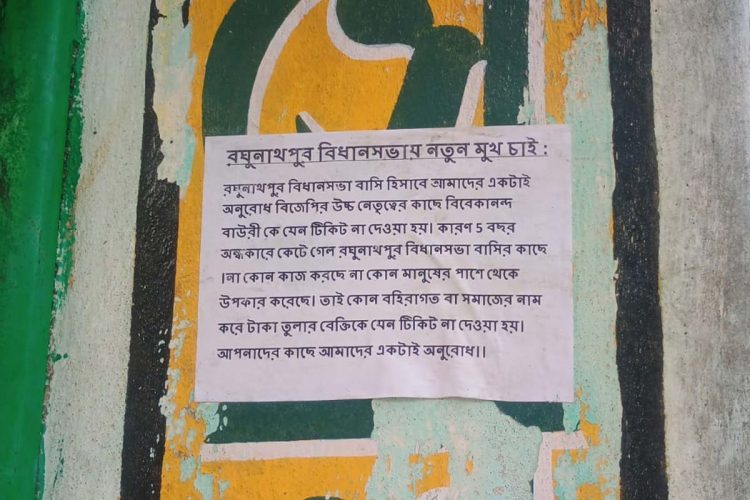 রঘুনাথপুর বিধানসভায় নতুন মুখ চাই :
রঘুনাথপুর বিধানসভা বাসি হিসাবে আমাদের একটাই
অনুরোধ বিজেপির উচ্চ নেতৃত্বের কাছে বিবেকানন্দ
বাউরী কে যেন টিকিট না দেওয়া হয়। কারণ 5 বছর
অন্ধকারে কেটে গেল রঘুনাথপুর বিধানসভা বাসির কাছে
।না কোন কাজ করছে না কোন মানুষের পাশে থেকে
উপকার করেছে। তাই কোন বহিরাগত বা সমাজের নাম
করে টাকা তুলার বেক্তিকে যেন টিকিট না দেওয়া হয়।
আপনাদের কাছে আমাদের একটাই অনুরোধ।।